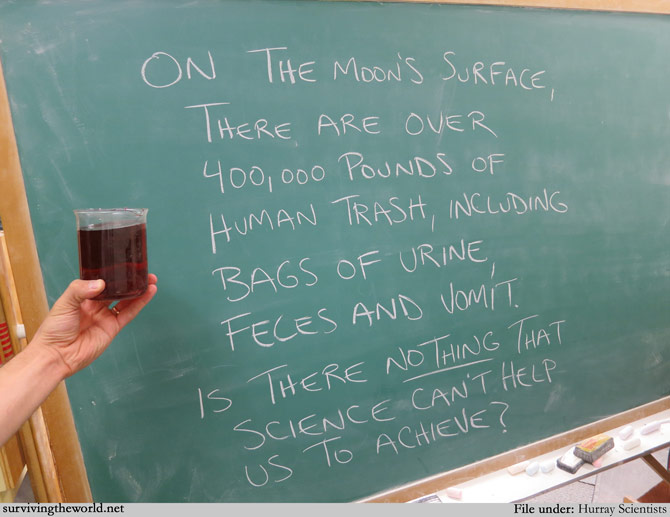 ON THE MOON'S SURFACE,
THERE ARE OVER
400,000 POUNDS OF
HUMAN TRASH, INCLUDING
BAGS OF URINE,
FECES AND VOMIT.
IS THERE NOTHING THAT
SCIENCE CAN'T HELP
US TO ACHIEVE?
survivingtheworld.net
File under: Hurray Scientists